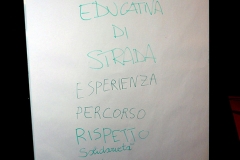 EDUCATIVA
DI
STRADA
ESPERIENZA
PERCORSO
RISPETTO
Solidarietà